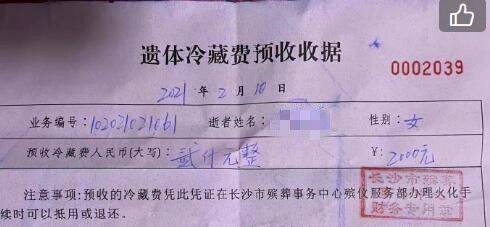 遗体冷藏费预收收据
0002039
2021 年 2 月 10 日
业务编号: 10203021061 逝者姓名: 性别: 女
预收冷藏费人民币(大写): 贰仟元整 ¥: 2000元
注意事项:预收的冷藏费凭此凭证在长沙市殡葬事务中心殡仪服务部办理火化手
续时可以抵用或退还。
长沙市殡葬
财务专用章